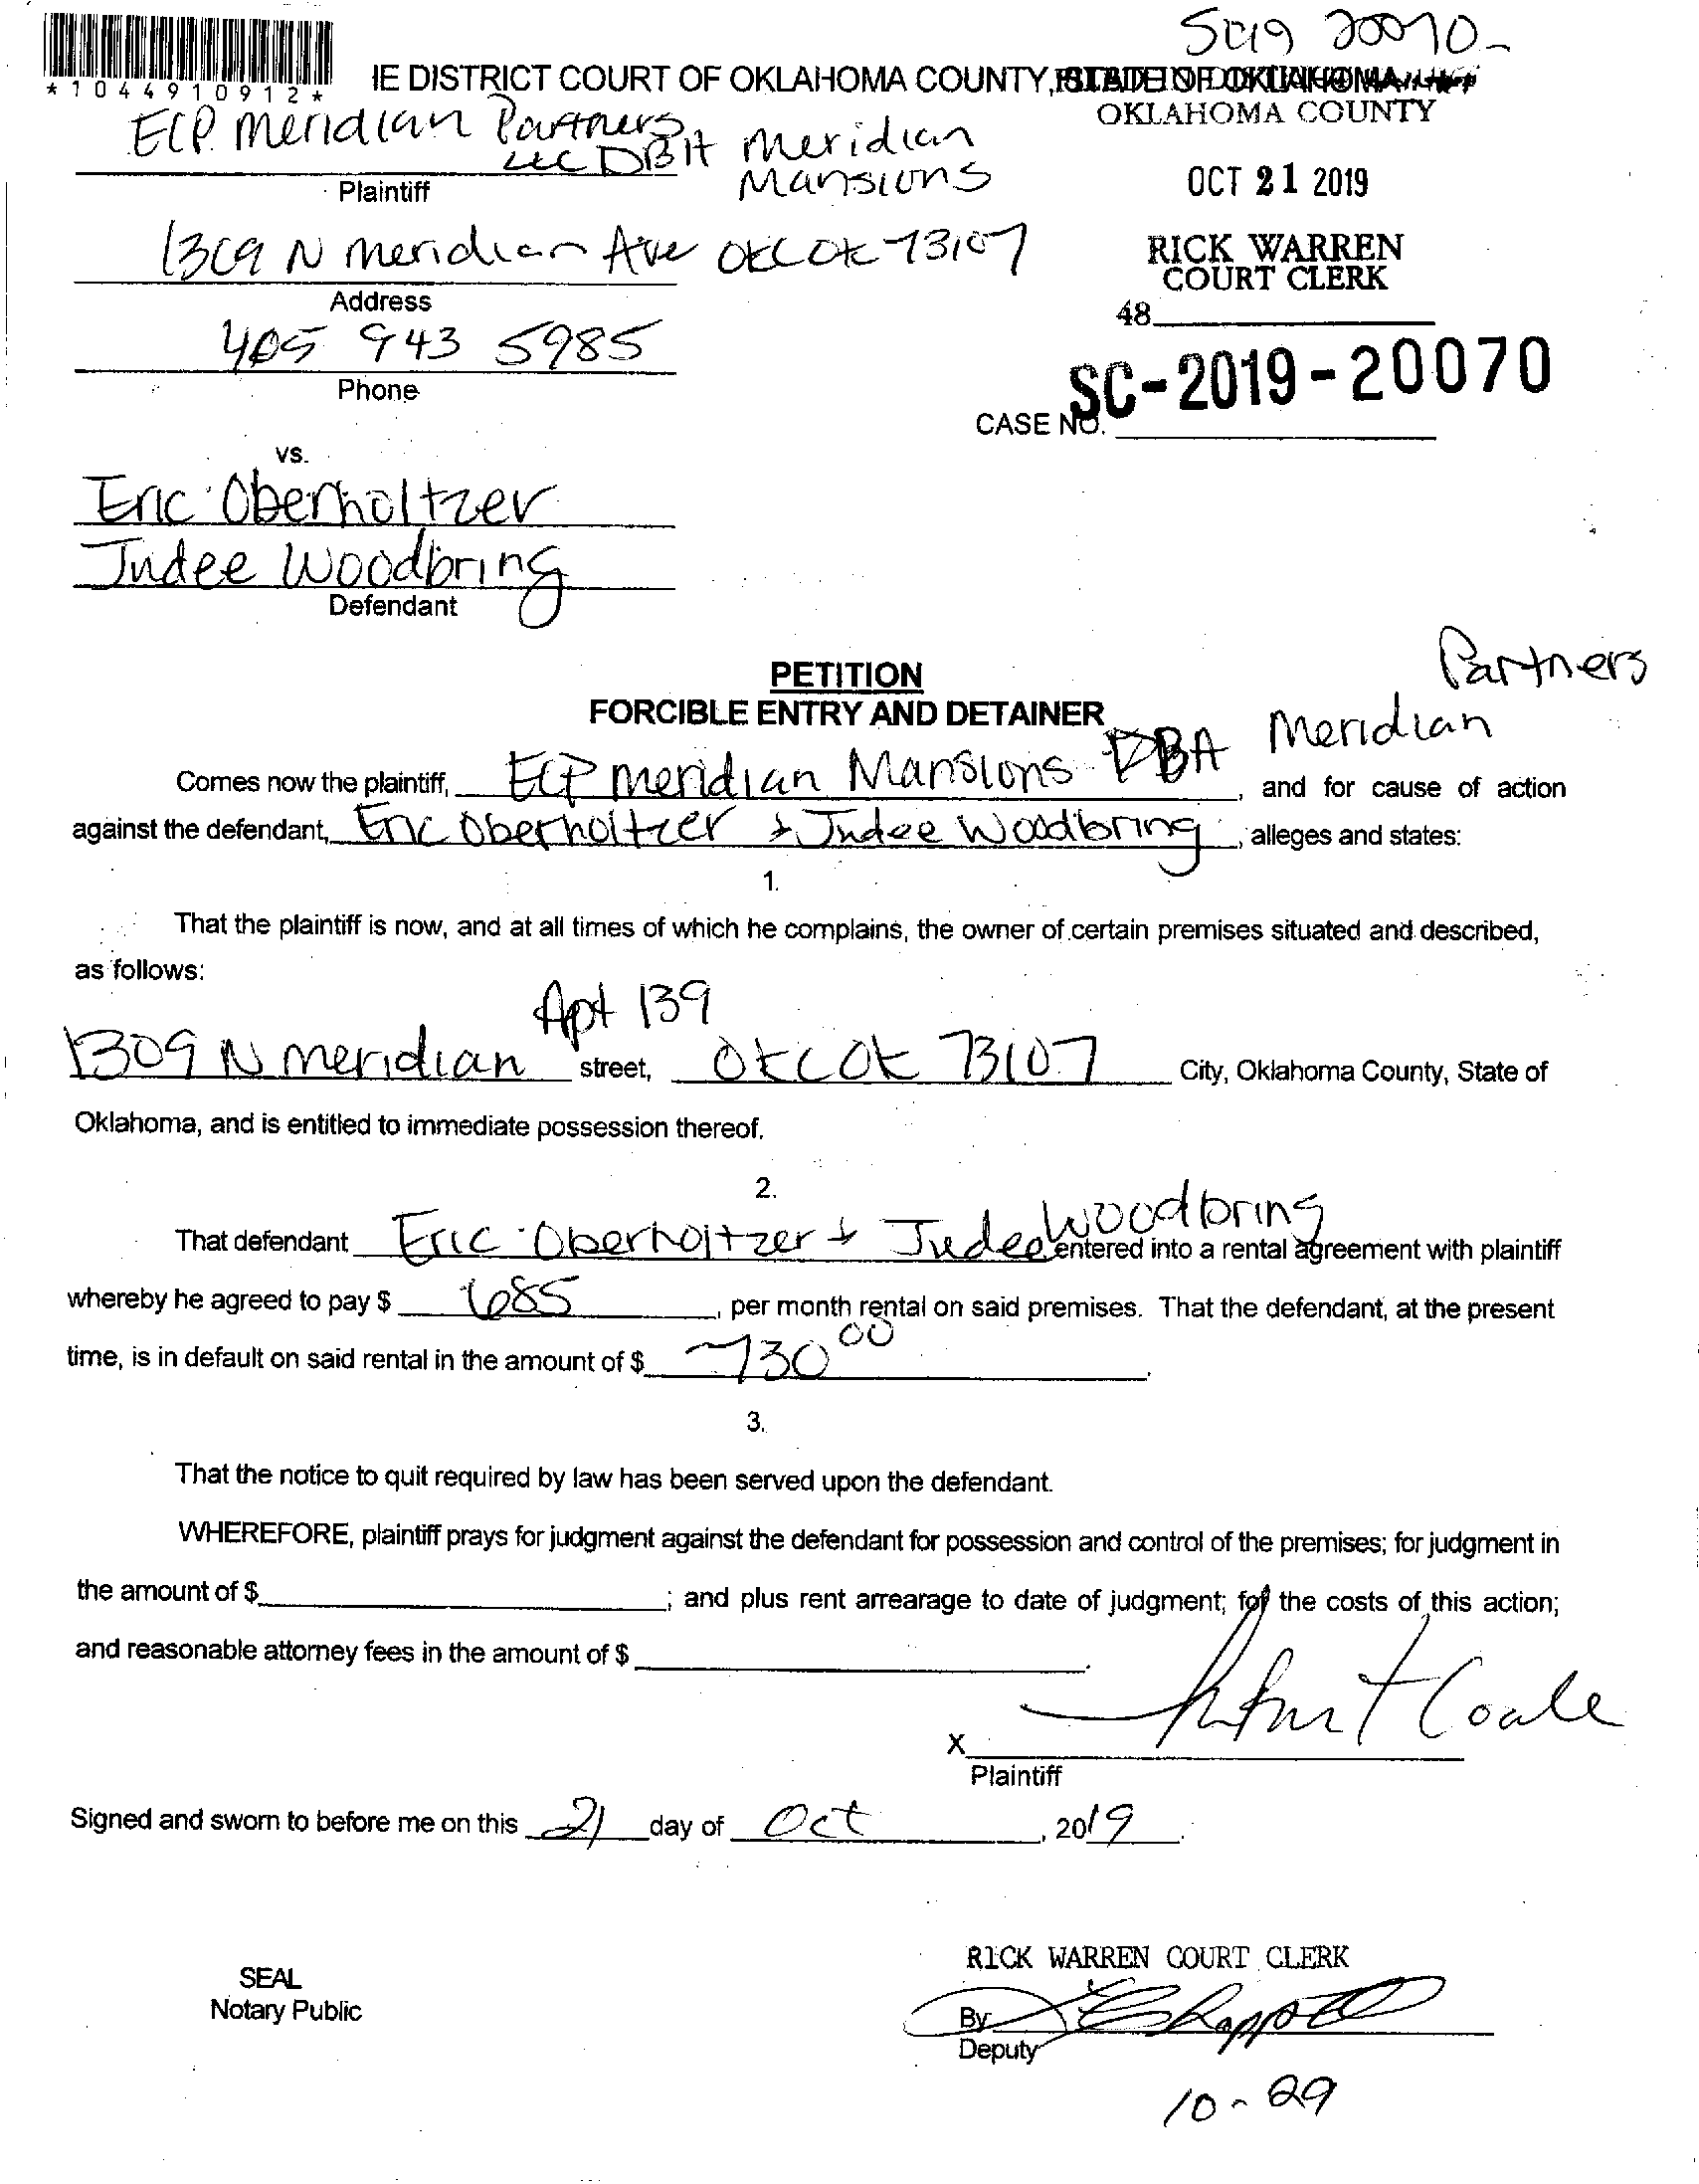 SC19 20070-
*1044910912*
IE DISTRICT COURT OF OKLAHOMA COUNTY,
OKLAHOMA COUNTY
ECP Meridian Partners
LLC DBA Meridian
Mansions
Plaintiff
OCT 21 2019
1309 N Meridian Ave OKC OK 73107
RICK WARREN
COURT CLERK
Address
48
405 943 5985
Phone
SC-2019-20070
CASE NO.
vs.
Eric Oberholtzer
Judee Woodbring
Defendant
PETITION
Partners
FORCIBLE ENTRY AND DETAINER
Meridian
Comes now the plaintiff, ECP Meridian Mansions DBA, and for cause of action
against the defendant, Eric Oberholtzer & Judee Woodbring, alleges and states:
1.
That the plaintiff is now, and at all times of which he complains, the owner of certain premises situated and described,
as follows:
Apt 139
1309 N Meridian street, OKC OK 73107 City, Oklahoma County, State of
Oklahoma, and is entitled to immediate possession thereof.
2.
That defendant Eric Oberholtzer & Judee Woodbring entered into a rental agreement with plaintiff
whereby he agreed to pay $ 685, per month rental on said premises. That the defendant, at the present
time, is in default on said rental in the amount of $ 730 00.
3.
That the notice to quit required by law has been served upon the defendant.
WHEREFORE, plaintiff prays for judgment against the defendant for possession and control of the premises; for judgment in
the amount of $ ; and plus rent arrearage to date of judgment; for the costs of this action;
and reasonable attorney fees in the amount of $ .
X
Plaintiff
Signed and sworn to before me on this 21 day of Oct, 2019.
RICK WARREN COURT CLERK
SEAL
Notary Public
By
Deputy
10-29